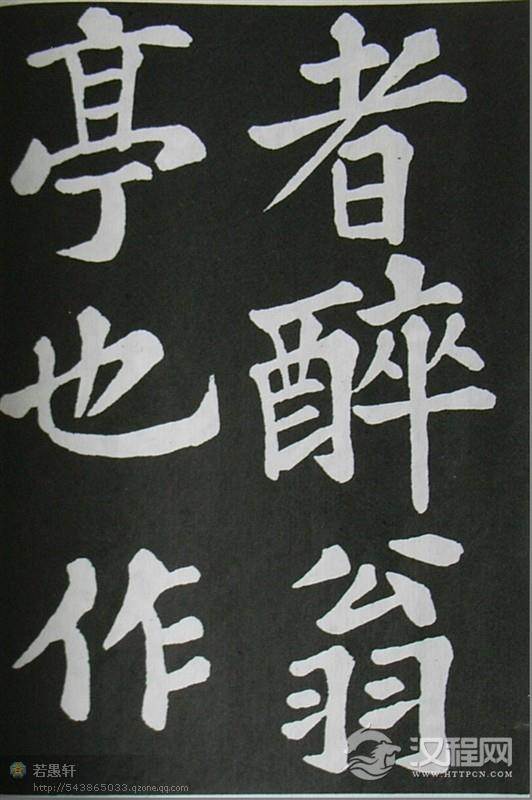 者醉翁
亭也作
若愚轩
http://543865033.qzone.qq.com
汉程网
WWW.HTTPCN.COM